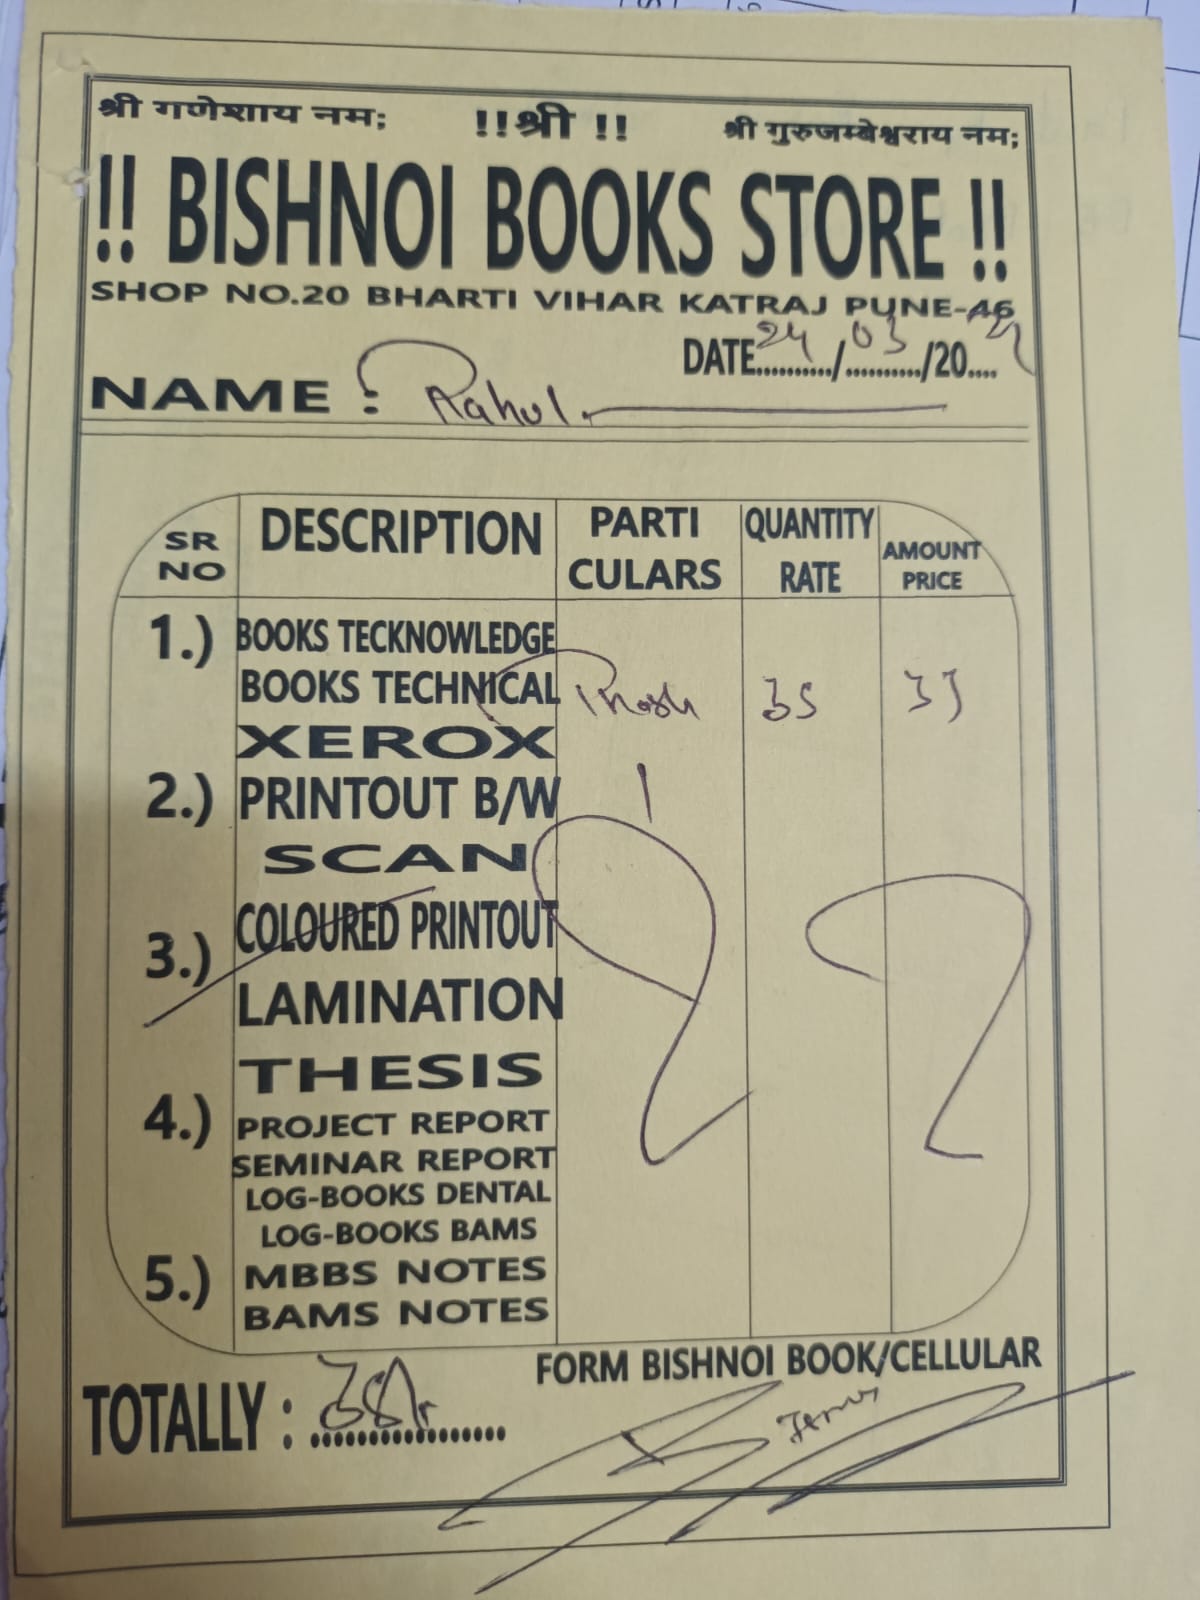 श्री गणेशाय नम; !!श्री !! श्री गुरुजम्बेश्वराय नम;
!! BISHNOI BOOKS STORE !!
SHOP NO.20 BHARTI VIHAR KATRAJ PUNE-46
DATE 24/03/20....
NAME : Rahul.
SR NO DESCRIPTION PARTI CULARS QUANTITY RATE AMOUNT PRICE
1.) BOOKS TECKNOWLEDGE
BOOKS TECHNICAL 35 35
XEROX
2.) PRINTOUT B/W
SCAN
3.) COLOURED PRINTOUT
LAMINATION
THESIS
4.) PROJECT REPORT
SEMINAR REPORT
LOG-BOOKS DENTAL
LOG-BOOKS BAMS
5.) MBBS NOTES
BAMS NOTES
FORM BISHNOI BOOK/CELLULAR
TOTALLY : 35/-